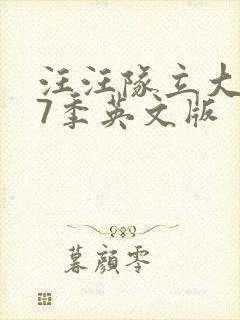 汪汪队立大
7季英文版
暮颜零